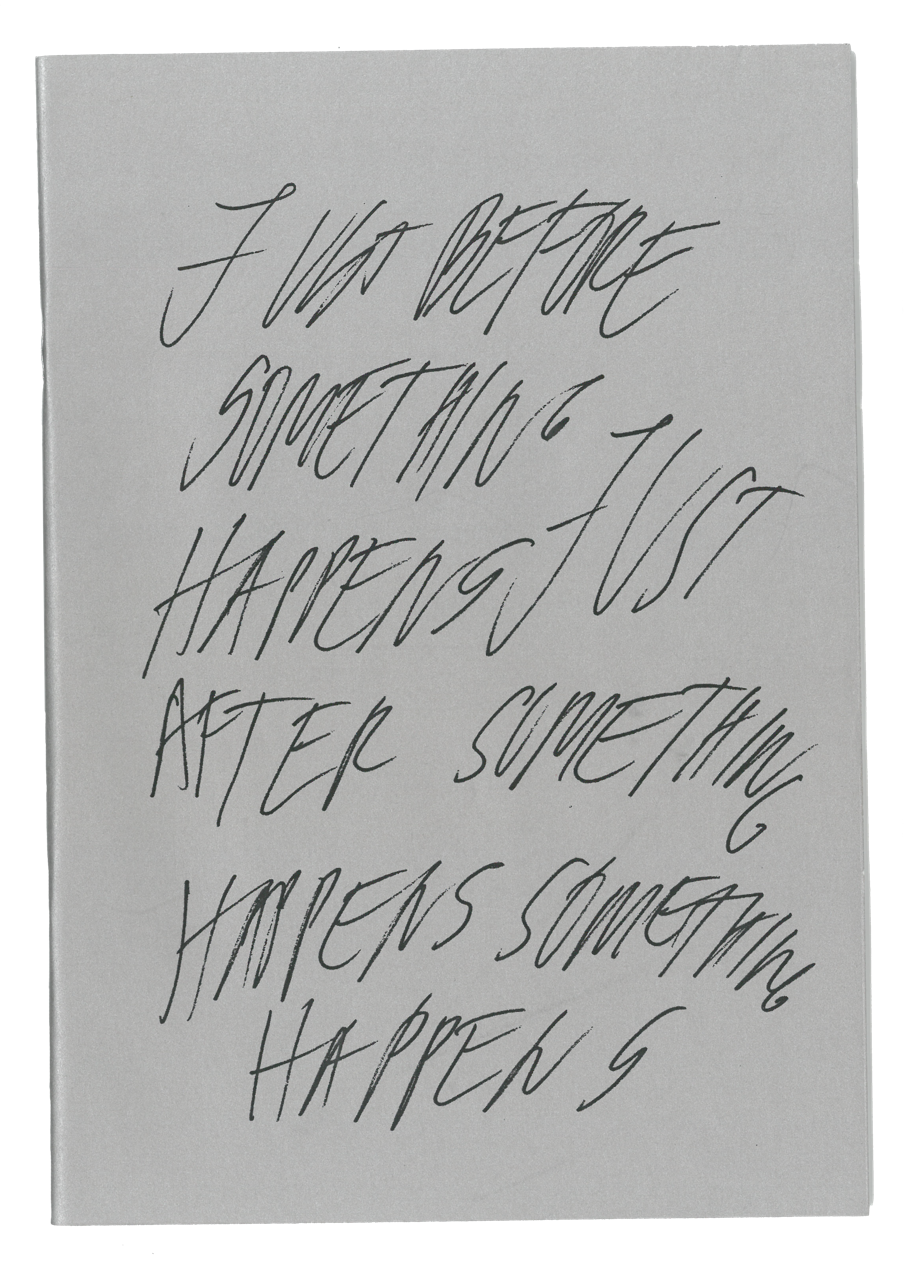 JUST BEFORE
SOMETHING
HAPPENS JUST
AFTER SOMETHING
HAPPENS SOMETHING
HAPPENS